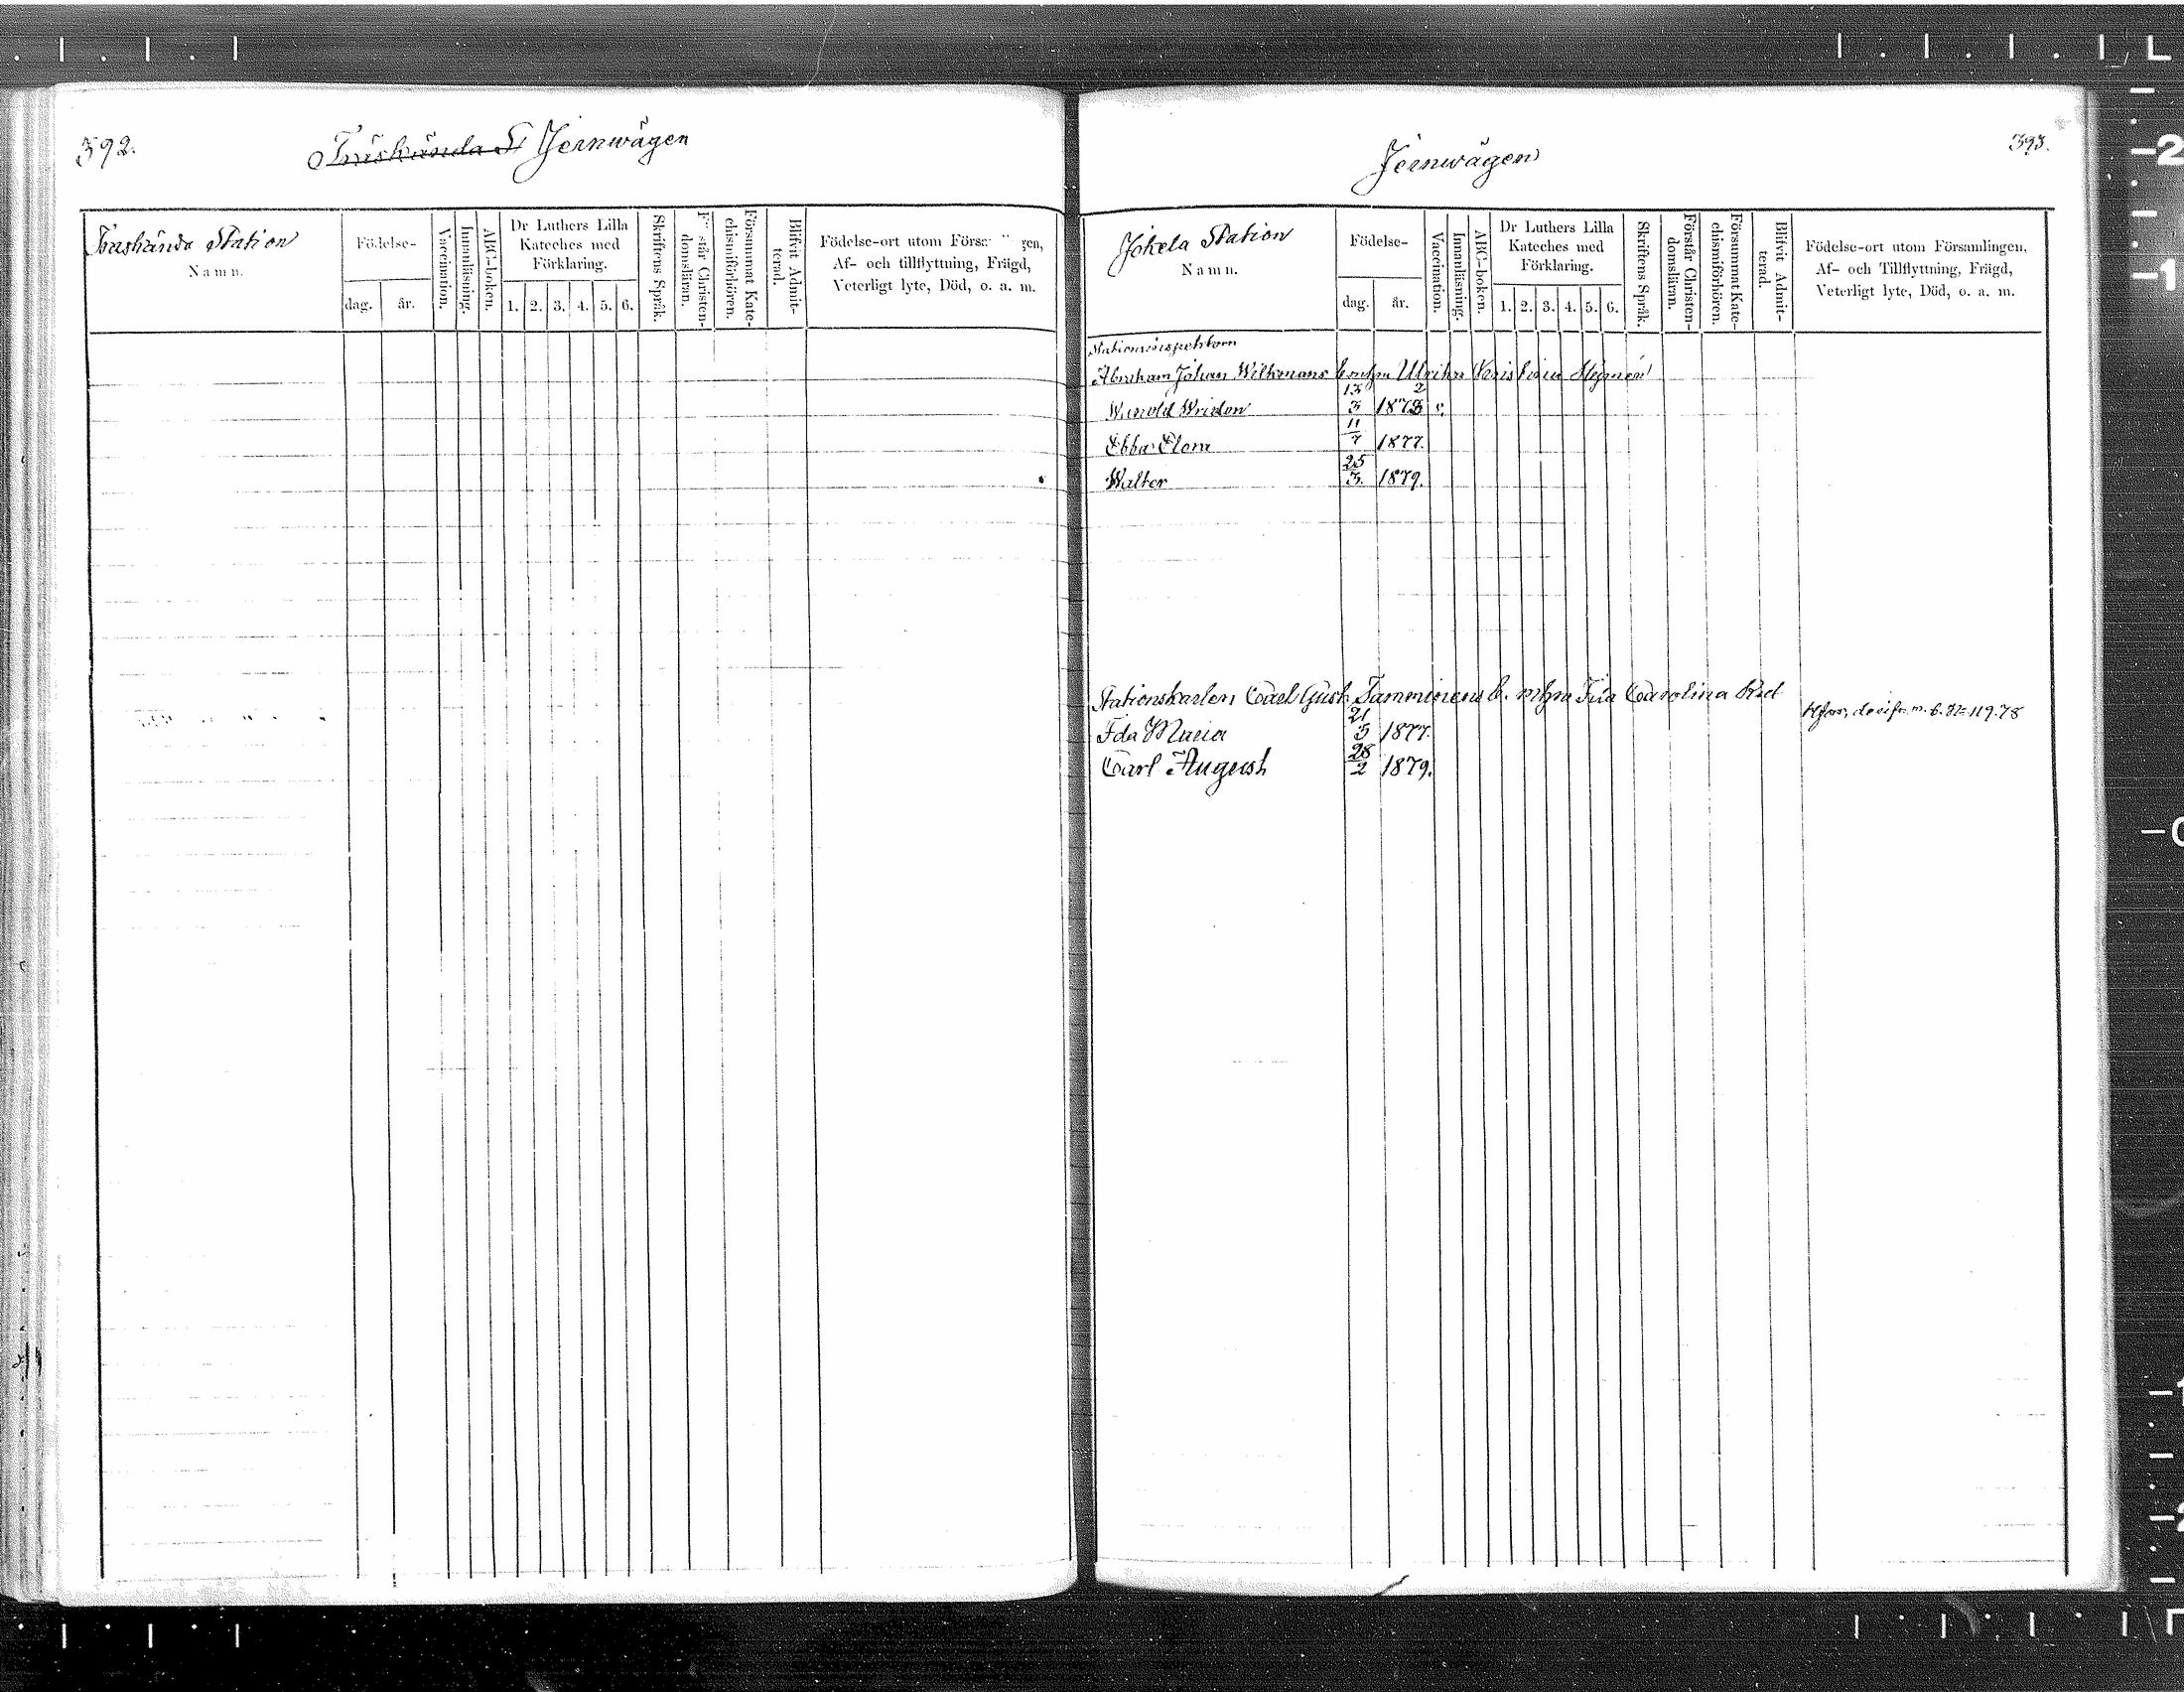 592.
Träskända St Jernwägen
Träskända Station
Namn.
Födelse-
dag.
år.
Vaccination.
Innanläsning.
ABC-boken.
Dr Luthers Lilla
Kateches med
Förklaring.
1. 2. 3. 4. 5. 6.
Skriftens Språk.
Förstår Christen-
domsläran.
Försummat Kate-
chismiförhören.
Blifvit Admit-
terad.
Födelse-ort utom Försa gen,
Af- och tillflyttning, Frägd,
Veterligt lyte, Död, o. a. m.
Jernwägen
393.
Jokela Station
Namn.
Födelse-
dag.
år.
Vaccination.
Innanläsning.
ABC-boken.
Dr Luthers Lilla
Kateches med
Förklaring.
1. 2. 3. 4. 5. 6.
Skriftens Språk.
Förstår Christen-
domsläran.
Försummat Kate-
chismiförhören.
Blifvit Admit-
terad.
Födelse-ort utom Församlingen,
Af- och Tillflyttning, Frägd,
Veterligt lyte, Död, o. a. m.
Stationsinspektorn
Abraham Johan Wilkmans b. m hfru Ulrika
13/3 1872 v.
Ebba Flora 11/7 1877.
Walter 25/3. 1879.
Stationskarlen Carl Gust. Tamminens b. m hfru Fiia Carolina
Hfors, m. b. 119.78
Ida Maria 21/5 1877.
Carl August 28/2 1879.